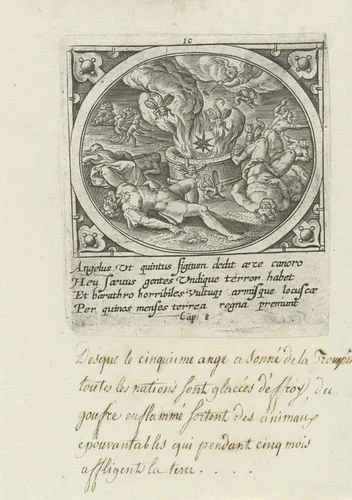 10
Angelus Vt quintus signum dedit ære canoro
Heu sæuus gentes Vndique terror habet
Et barathro horribiles Vultuq; armisque locustæ
Per quinos menses terrea regna premunt
Cap: 8
Desque le cinquieme ange a sonné de la Trompette
toutes les nations sont glacées d'effroy, du
gouffre enflammé sortent des animaux
epouvantables qui pendant cinq mois
affligent la terre . . . . .